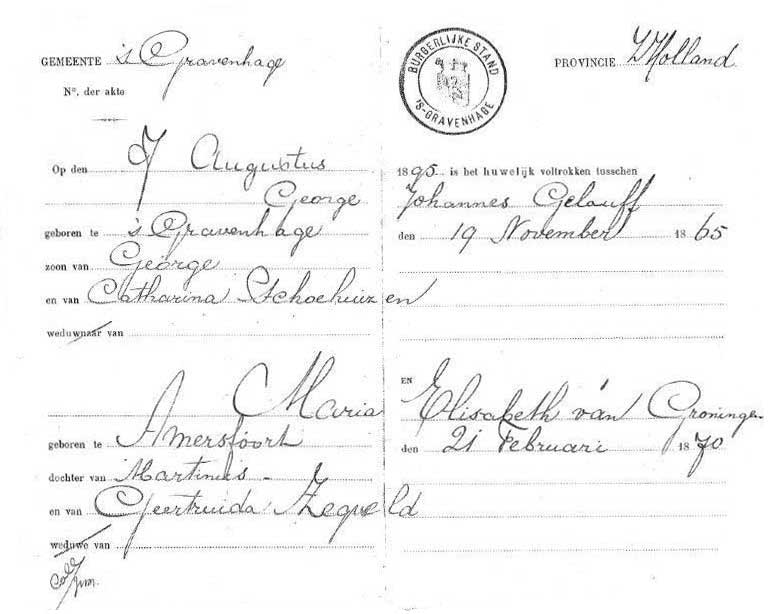 GEMEENTE 's Gravenhage
BURGERLIJKE STAND 'S-GRAVENHAGE
PROVINCIE Z Holland
Nº. der akte
Op den 7 Augustus 1895 is het huwelijk voltrokken tusschen
George Johannes Gelauff
geboren te 's Gravenhage den 19 November 1865
zoon van George
en van Catharina Schoehuizen
weduwnaar van
EN
Maria Elisabeth van Groningen
geboren te Amersfoort den 21 Februari 1870
dochter van Martinus
en van Geertruida Zegveld
weduwe van